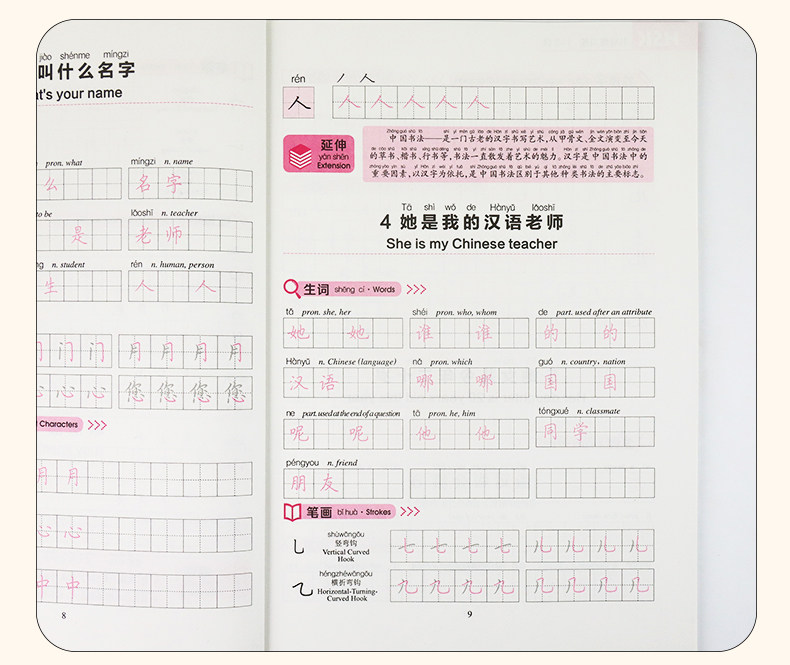 jiào shénme míngzi
叫什么名字
at's your name
pron. what
míngzi n. name
么
名 字
to be
lǎoshī n. teacher
是
老 师
ng n. student
rén n. human, person
生
人 人
门 门 门
月 月 月 月
心 心 心
您 您 您 您
Characters
月 月
心 心
中 中
8
rén
人
人 人 人 人 人 人
延伸
yán shēn
Extension
中国书法——是一门古老的汉字书写艺术,从甲骨文、金文演变至今天
的草书、楷书、行书等,书法一直散发着艺术的魅力。汉字是中国书法中的
重要因素,以汉字为依托,是中国书法区别于其他种类书法的主要标志。
Tā shì wǒ de Hànyǔ lǎoshī
4 她是我的汉语老师
She is my Chinese teacher
生词 shēng cí · Words
tā pron. she, her
shéi pron. who, whom
de part. used after an attribute
她 她
谁 谁
的 的
Hànyǔ n. Chinese (language)
nǎ pron. which
guó n. country, nation
汉 语
哪 哪
国 国
ne part. used at the end of a question
tā pron. he, him
tóngxué n. classmate
呢 呢
他 他
同 学
péngyou n. friend
朋 友
笔画 bǐ huà · Strokes
shùwāngōu
竖弯钩
Vertical Curved
Hook
乚
七 七 七 七
儿 儿 儿 儿
héngzhéwāngōu
横折弯钩
Horizontal-Turning-
Curved Hook
乙
九 九 九 九
几 几 几 几
9